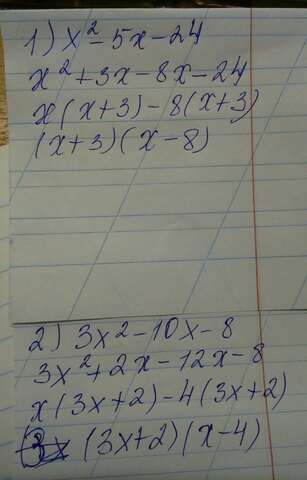 1) x² - 5x - 24
x² + 3x - 8x - 24
x(x+3) - 8(x+3)
(x+3)(x-8)
2) 3x² - 10x - 8
3x² + 2x - 12x - 8
x(3x+2) - 4(3x+2)
(3x+2)(x-4)